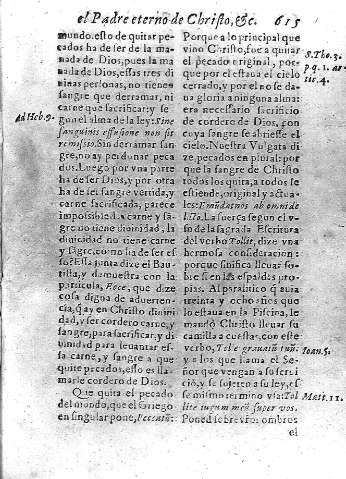 el Padre eterno de Christo, &c. 615
mundo. esto de quitar pe-
cados ha de ser de la ma
nada de Dios, pues la ma
nada de Dios, essas tres di
uinas personas, no tienen
sangre que derramar, ni
carne que sacrificar: y se-
gun el alma de la ley: Sine
sanguinis effusione non fit
remissio. Sin derramar san
gre, no ay perdonar peca
dos. Luego por vna parte
ha de ser Dios, y por otra
ha de ser sangre vertida, y
carne sacrificada, parece
impossible. La carne y sã-
gre no tiene diuinidad, la
diuinidad no tiene carne
y sãgre, como ha de ser es
to? Essa junta dize el Bau-
tista, y demuestra con la
particula, Ecce, que dize
cosa digna de aduerten-
cia, q̃ ay en Christo diuini
dad, y ser cordero carne, y
sangre, para sacrificar; y di
uinidad para leuantar es-
sa carne, y sangre a que
quite pecados, esso es lla-
marle cordero de Dios.
Que quita el pecado
del mundo, que el Griego
en singular pone, Peccatũ:
Ad Heb. 9.
Porque a lo principal que
vino Christo, fue a quitar
el pecado original, por-
que por el estaua el cielo
cerrado, y por el no se da-
ua gloria a ninguna alma:
era necessario sacrificio
de cordero de Dios, con
cuya sangre se abriesse el
cielo. Nuestra Vulgata di
ze pecados en plural: por
que la sangre de Christo
todos los quita, a todos se
estiende, original y actua-
les: Emũdat nos ab omni de
licto. La fuerça segun el v-
so de la sagrada Escritura
del verbo Tollit, dize vna
hermosa consideracion:
porque sinifica lleuar so-
bre si en las espaldas pro-
pias. Al paralitico q̃ auia
treinta y ocho años que
lo estaua en la Piscina, le
mandò Christo lleuar su
camilla a cuestas, con este
verbo, Tolle grauatũ tuũ.
y a los que llama el Se-
ñor que vengan a su serui
cio, y se sujeten a su ley, es
se mismo termino via: Tol
lite iugum meũ super vos.
Poned sobre vrõs ombros
el
S. Tho. 3.
p. q. 1. ar
tic. 4.
Ioan. 5.
Mat. 11.